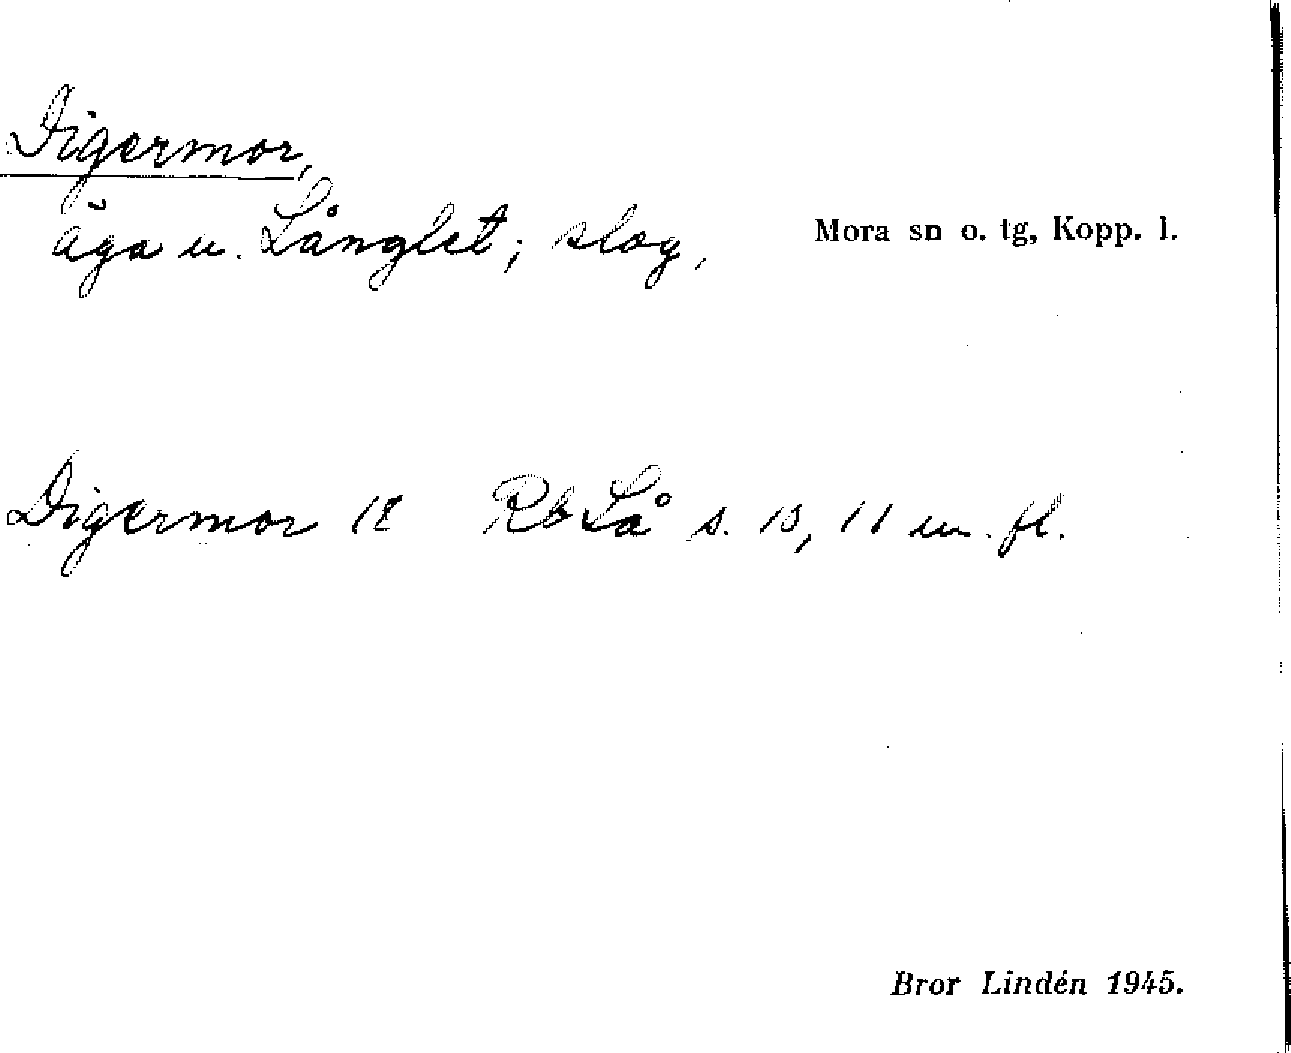 Digermor,
äga u. Långlet; slog,
Mora sn o. tg, Kopp. l.
Digermor 18 Rb Lå s. 10, 11 m. fl.
Bror Lindén 1945.